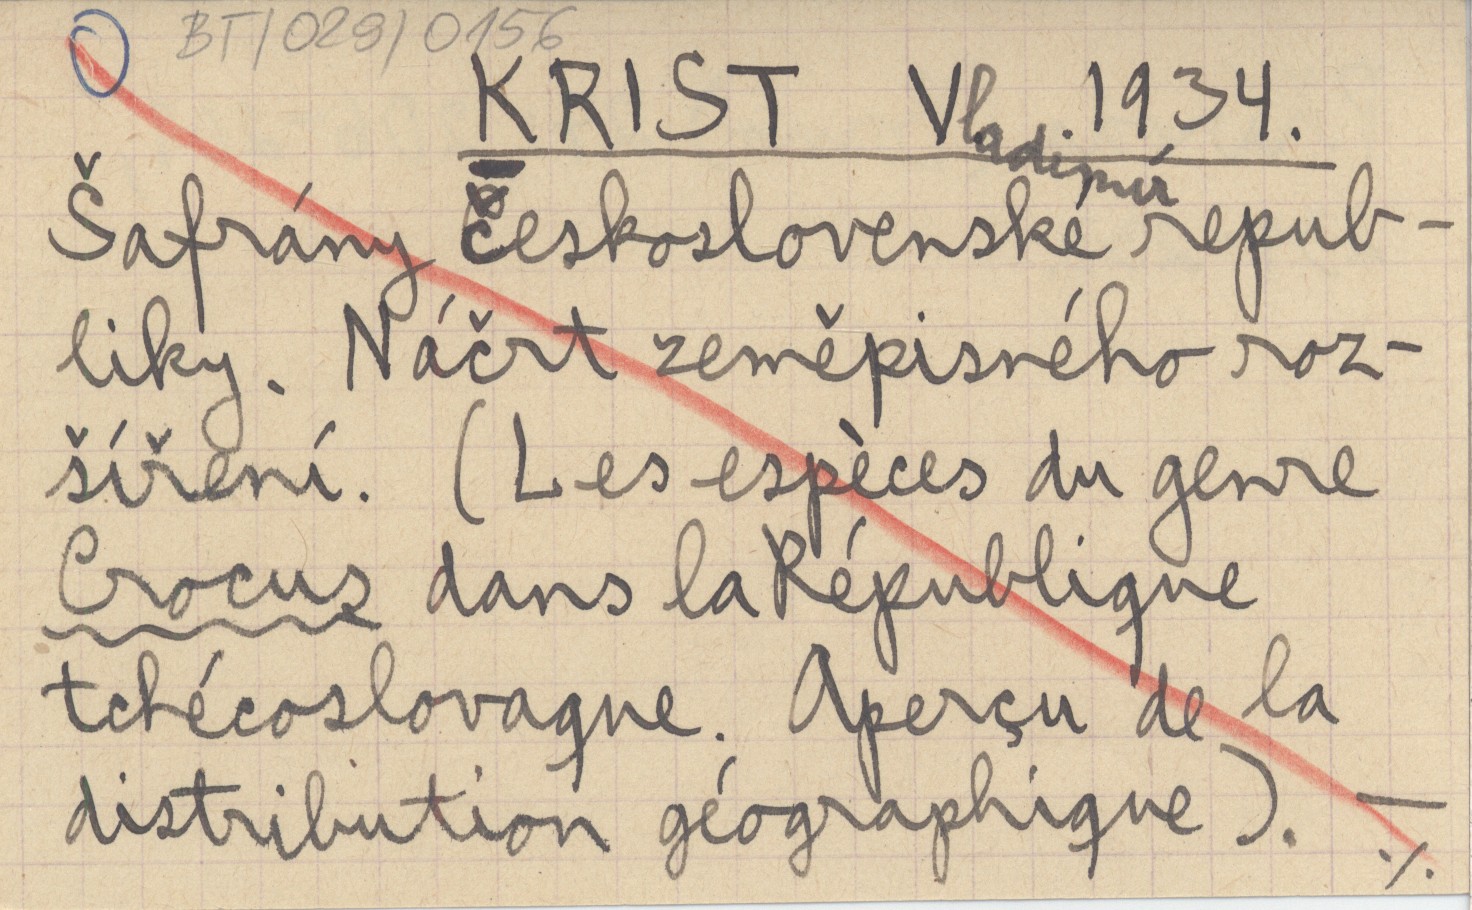 BT/029/0156
KRIST Vladimír 1934.
Šafrány Československé repub-
liky. Náčrt zeměpisného roz-
šíření. (Les espèces du genre
Crocus dans la République
tchécoslovaque. Aperçu de la
distribution géographique). —
./.